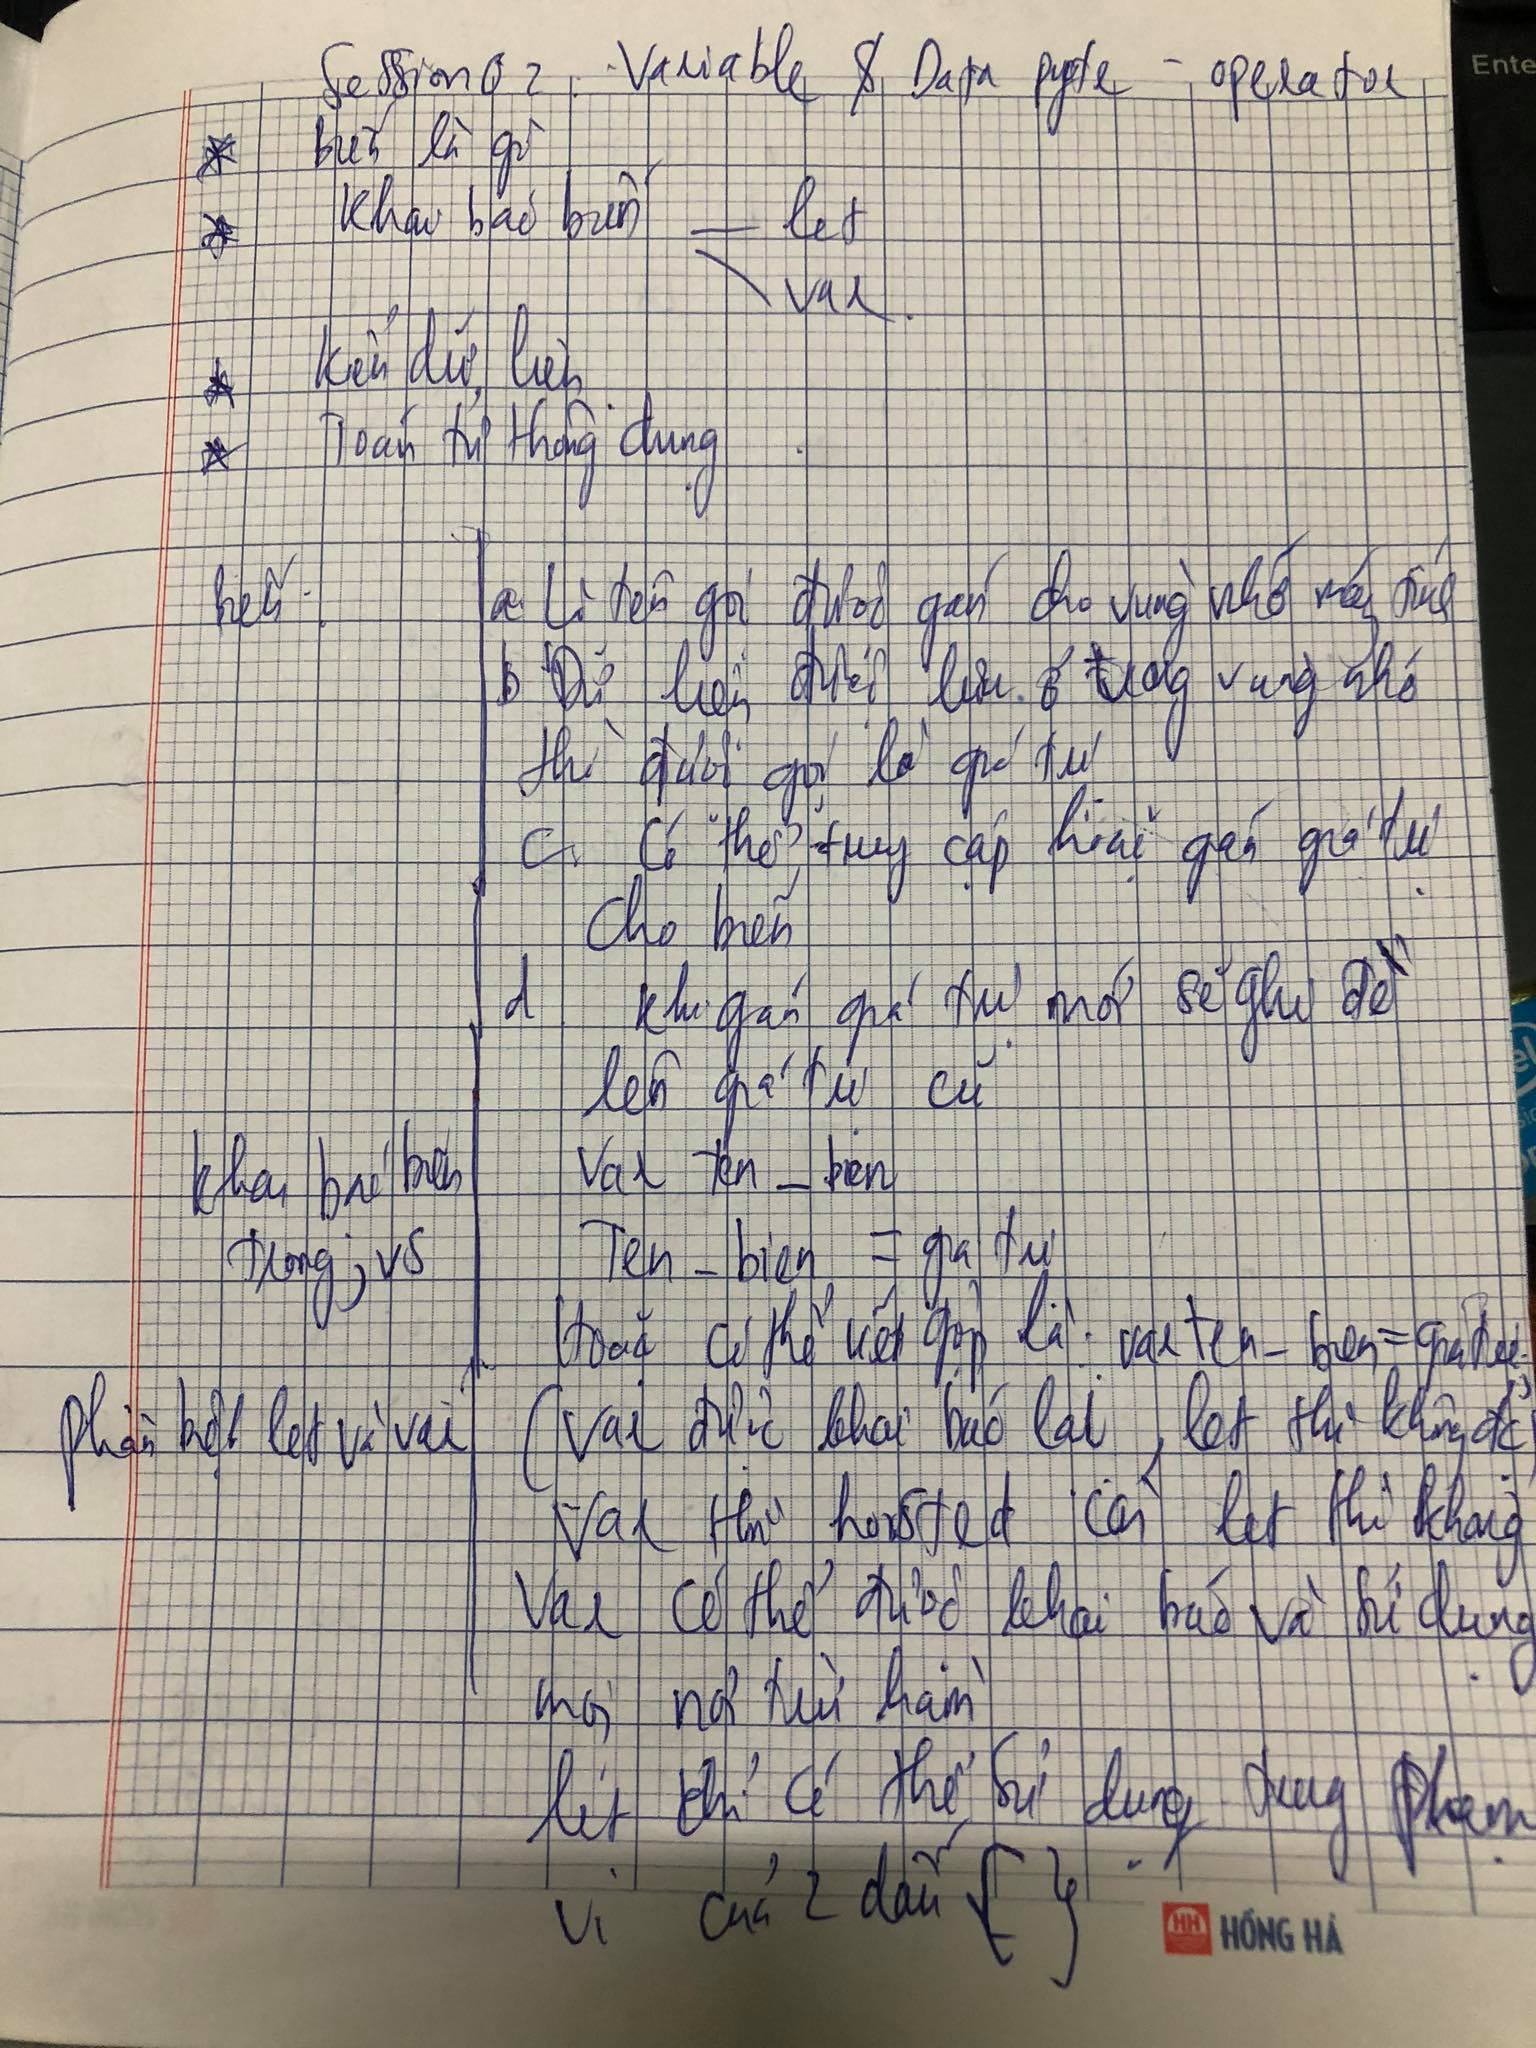 Session 02 : Variable & Data pyte - operator
* biến là gì
* Khai báo biến — let
var.
* Kiểu dữ liệu
* Toán tử thông dụng
biến: a. Là tên gọi được gán cho vùng nhớ máy tính
b Dữ liệu được lưu ở trong vùng nhớ
thì được gọi là giá trị
c. Có thể truy cập hoặc gán giá trị
cho biến
d khi gán giá trị mới sẽ ghi đè
lên giá trị cũ
khai báo biến var ten_bien
trong js Ten_bien = gia tri
Hoặc có thể viết gộp là: var ten_bien = gia tri
phân biệt let và var (var được khai báo lại, let thì không đc
var thì hoisted còn let thì không
var có thể được khai báo và sử dụng
mọi nơi trừ hàm
let chỉ có thể sử dụng trong phạm
vi của 2 dấu { }
HỒNG HÀ
Ente